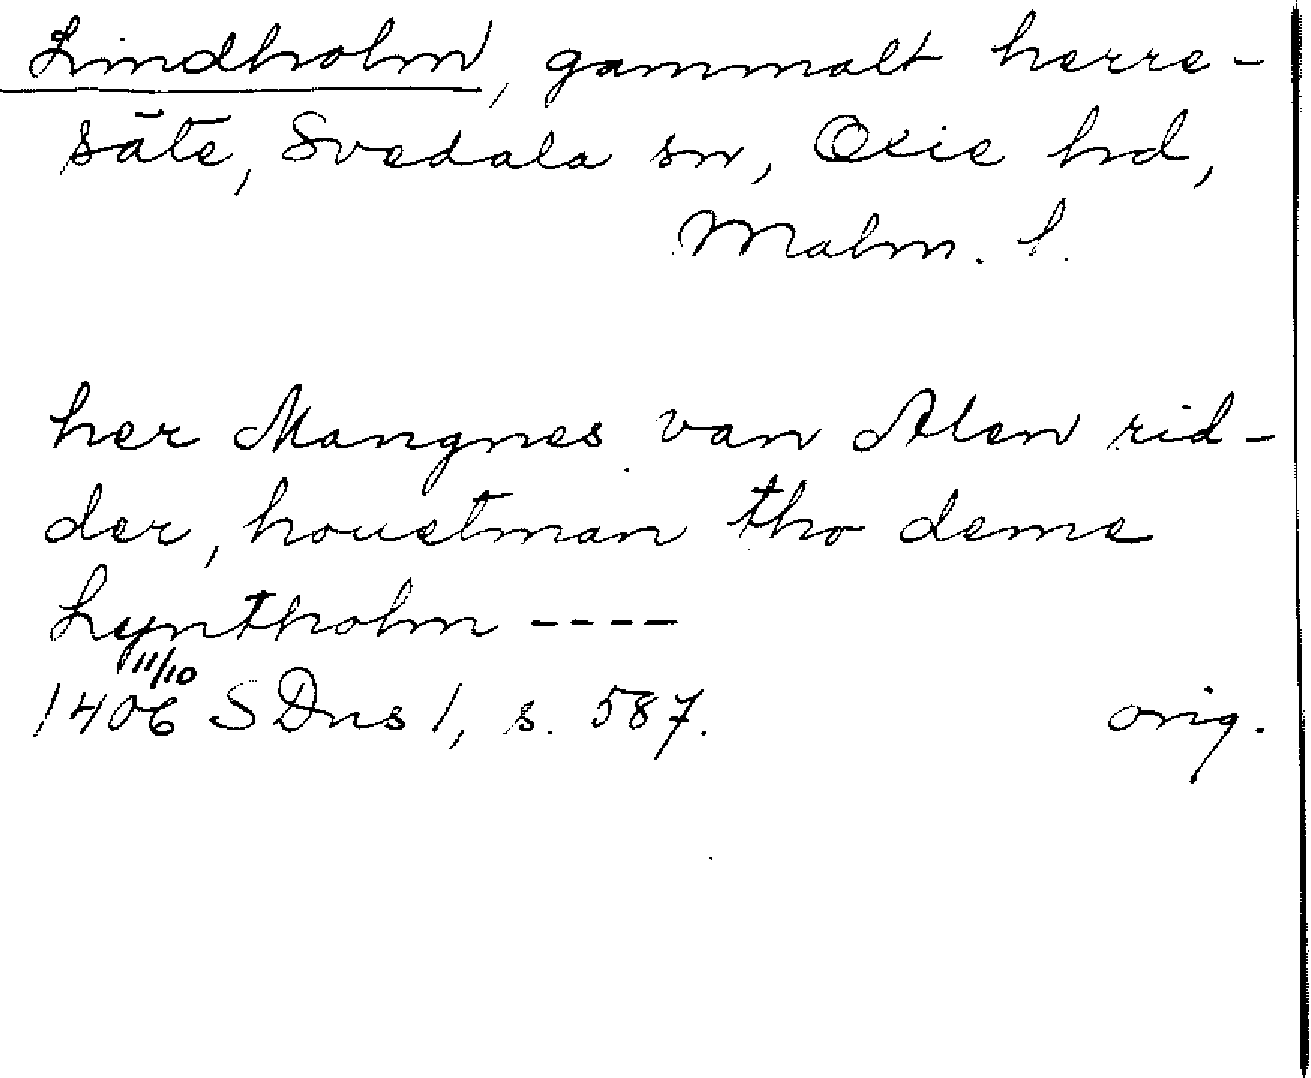 Lindholm, gammalt herre-
säte, Svedala sn, Oxie hd,
Malm. l.
her Mangnes van Alen rid-
der, houetman tho deme
Lyntholm ----
11/10
1406 SDns 1, s. 587. orig.